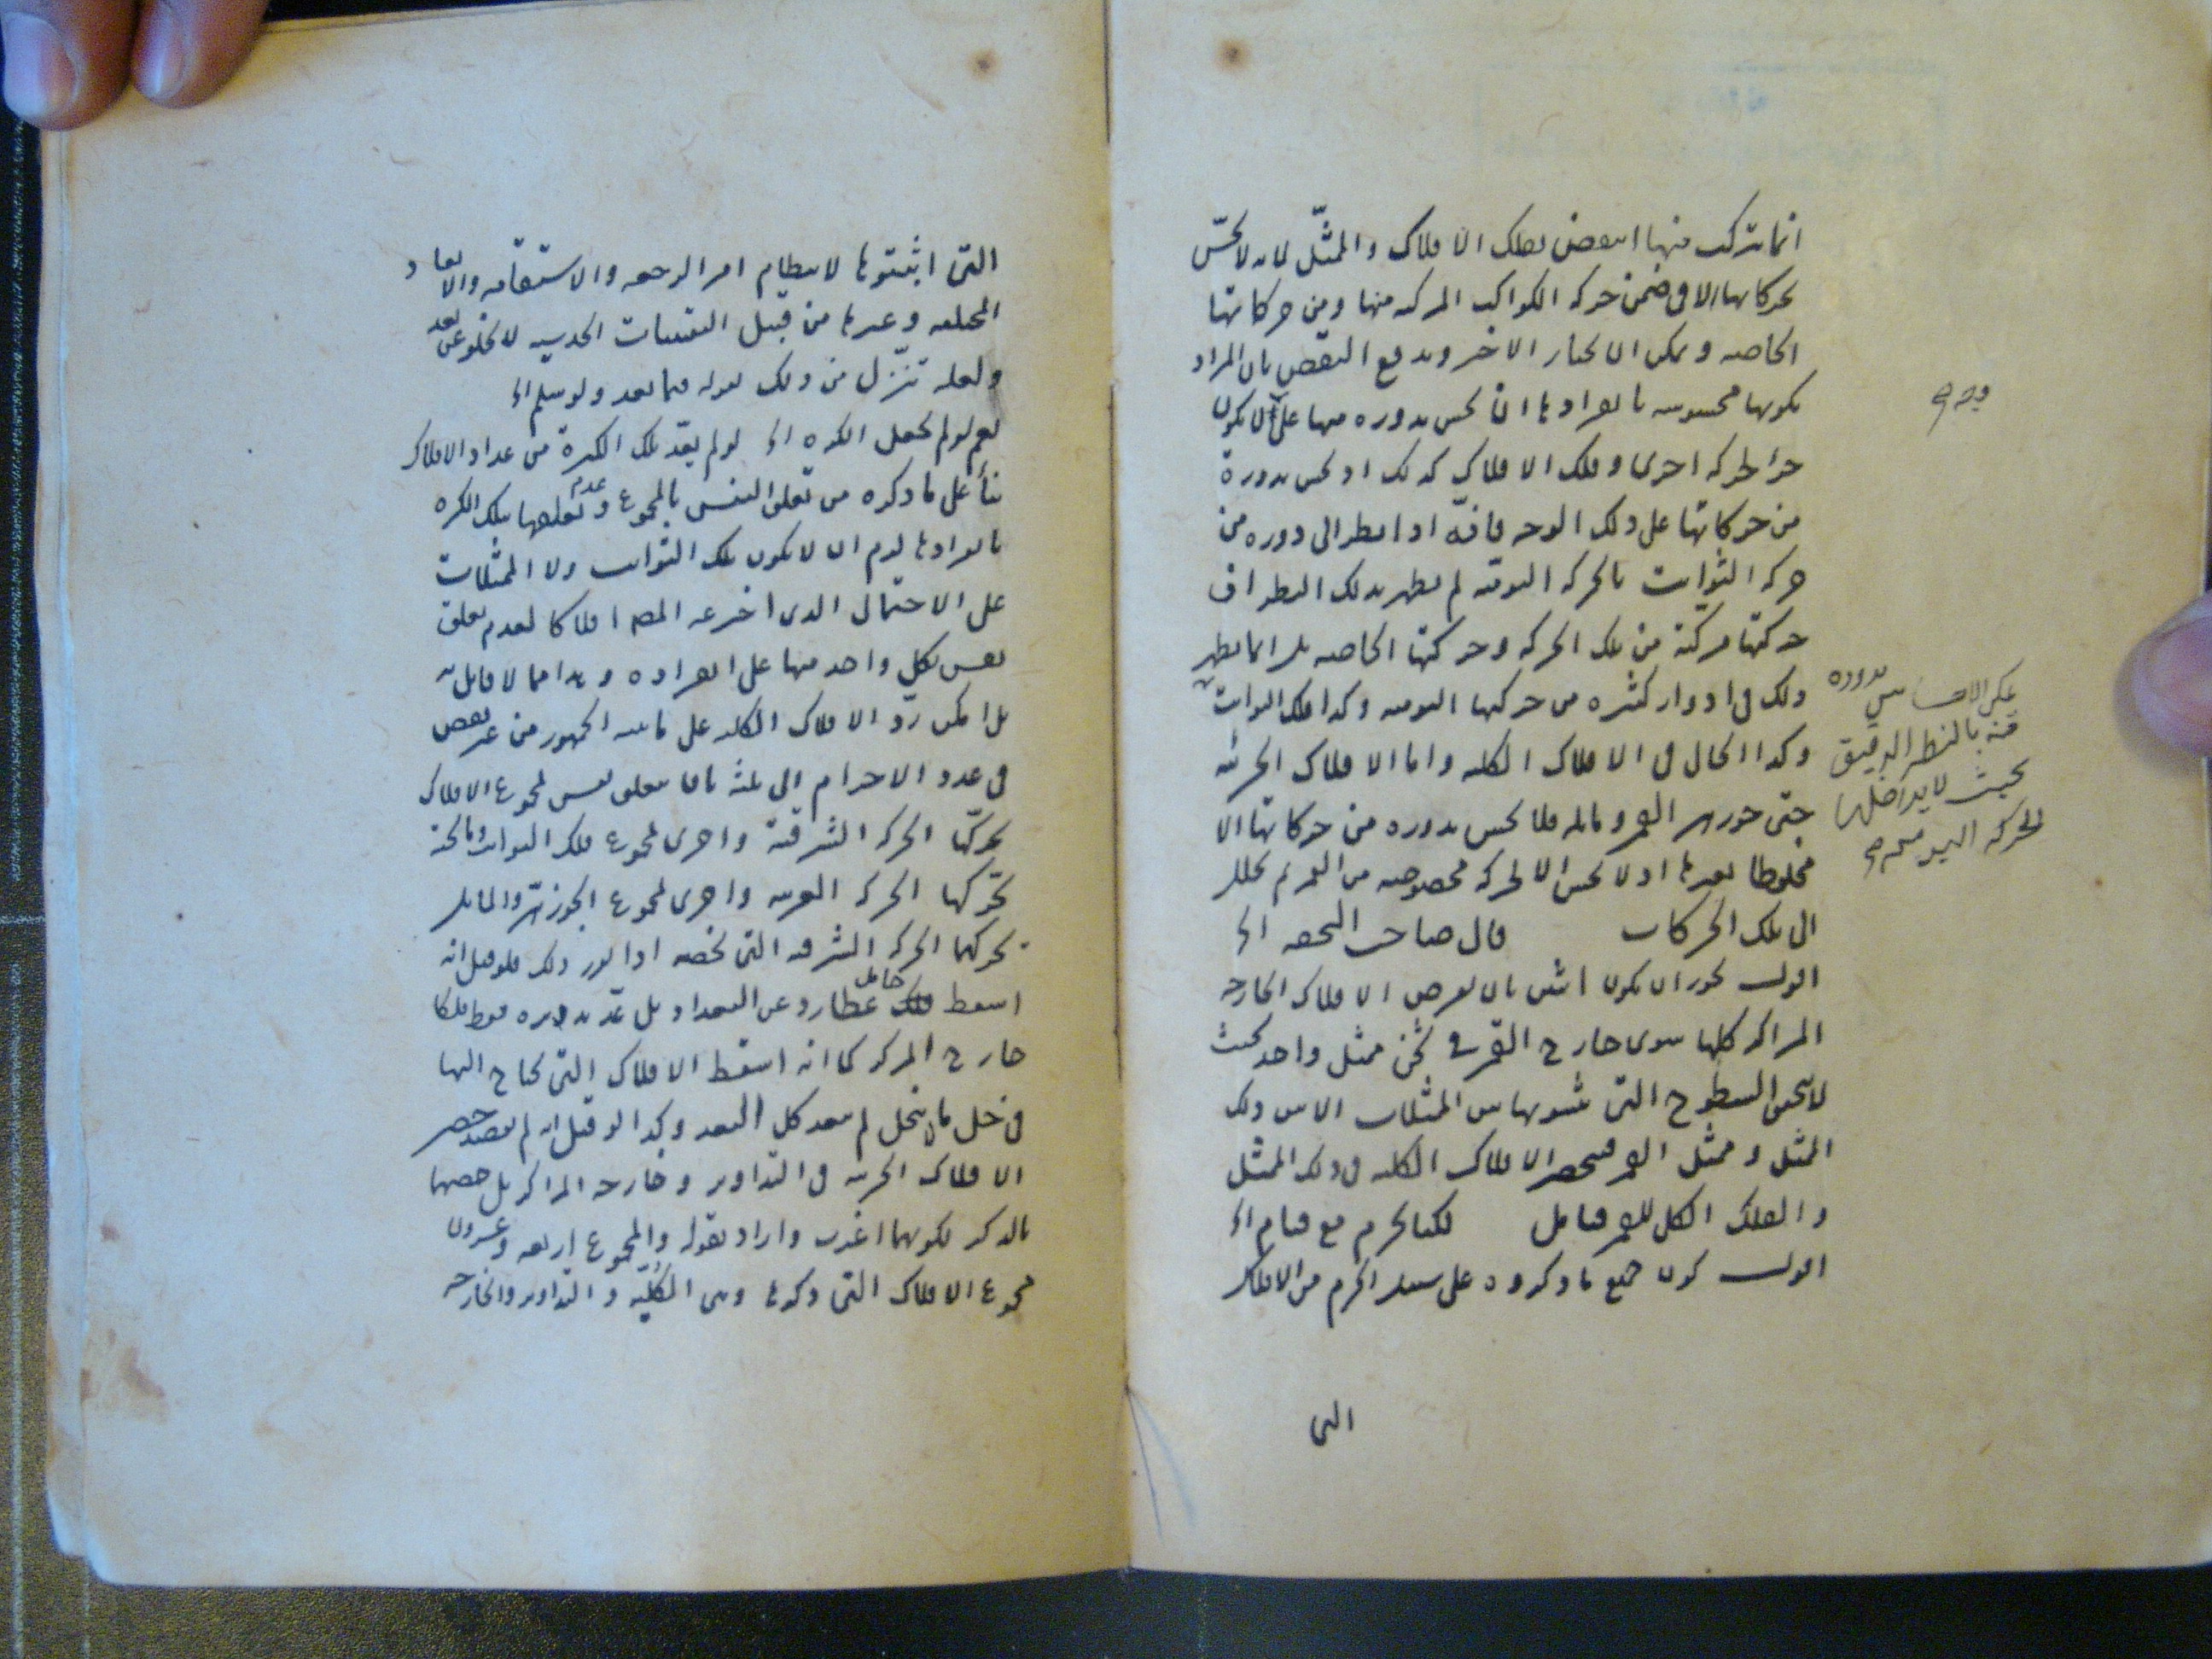 انما يتركب منها انتقض بفلك الافلاك والممثّل لانه لا يحسّ
بحركاتها الا في ضمن حركة الكواكب المركبة منها ومن حركاتها
الخاصه ويمكن ان يختار الاخر ويدفع النقض بان المراد
بكونها محسوسه بانفرادها ان يحس بدوره منها على ان لا يكون
جزا لحركه اخرى وفلك الافلاك كذلك اذ يحس بدورة
من حركاتها على ذلك الوجه فانّه اذا نظر الى دوره من
حركه الثوابت بالحركه اليوميّه لم يظهر بذلك النظر ان
حركتها مركبّة من تلك الحركه وحركتها الخاصه بل انما يظهر
ذلك في ادوار كثيره من حركتها اليوميه وكذا فلك الثوابت
وكذا الحال في الافلاك الكليه واما الافلاك الجزئيه
حتى جوزهر القمر ومائله فلا يحس بدوره من حركاتها الا
مخلوطا بغيرها اذ لا يحس الا بحركه مخصوصه من القمر ثم يحلل
الى تلك الحركات قال صاحب التحفه الخ
اقول يجوز ان يكون اثنين بان يفرض الافلاك الخارجه
المراكز كلها سوى خارج القمر في ثخن ممثل واحد بحيث
لا يتحقق السطوح التي يثبتونها بين الممثلات الا بين ذلك
الممثل وممثل القمر فينحصر الافلاك الكليه في ذلك الممثل
والفلك الكلى للقمر فتامل لكنا نجزم مع قيام الخ
اقول كون جميع ما ذكروه على سبيل الجزم من الافلاك
التى
يمكن الاحساس بدوره
منه بالنظر الدقيق
بحيث لا يداخلها
الحركه اليوميه
التى اثبتوها لانتظام امر الرجعه والاستقامه والابعاد
المختلفه وغيرها من قبيل اليقينيات الحدسيه لا يخلو عن بعد
ولعله تنزّل من ذلك بقوله فيما بعد ولو سلم الخ
نعم لو لم يجعل الكره الخ لو لم يعد تلك الكرة من عداد الافلاك
بناءً على ما ذكره من تعلق النفس بالمجموع وعدم تعلقها بتلك الكره
بانفرادها لزم ان لا يكون فلك الثوابت ولا الممثلات
على الاحتمال الذى اخترعه المصـ افلاكا لعدم تعلق
نفس بكل واحد منها على انفراده وهذا مما لا قايل به
بل امكن ردّ الافلاك الكليه على ما عليه الجمهور من غير نقص
في عدد الاجرام الى ثلثة بان يتعلق نفس لمجموع الافلاك
يحركّها الحركه الشرقيّة واخرى لمجموع فلك الثوابت وما تحته
تحركها الحركه الغربيه واخرى لمجموع الجوزهّر والمايل
تحركهما الحركه الشرقيه التى تخصه اذا تقرر ذلك فلو قيل انه
اسقط فلك حامل عطارد عن التعداد بل عدّ مديره فقط فلكا
خارج المركز كما انه اسقط الافلاك التى يحتاج اليها
في حل ما لا ينحل لم يبعد كل البعد وكذا لو قيل انه لم يقصد حصر
الافلاك الجزييه في التداوير وخارجه المراكز بل خصها
بالذكر لكونهما اغرب واراد بقوله والمجموع اربعه وعشرون
مجموع الافلاك التى ذكرها وهى الكُليّه والتداوير والخارجه